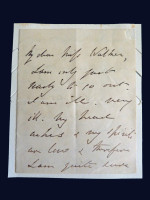 My dear Miss Walker,
I am only just
ready to go out.
I am ill. very
ill. My head
aches & my spirits
are low & therefore
I am quite